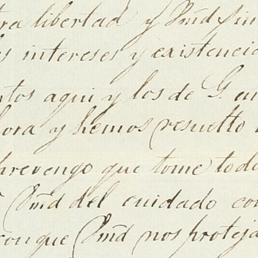 tra libertad y Vmd sin
os intereses y existencia
ntos aqui y los de G. en
hora y hemos resuelto
prevengo que tome todo
Vmd del cuidado con
con que Vmd nos proteja